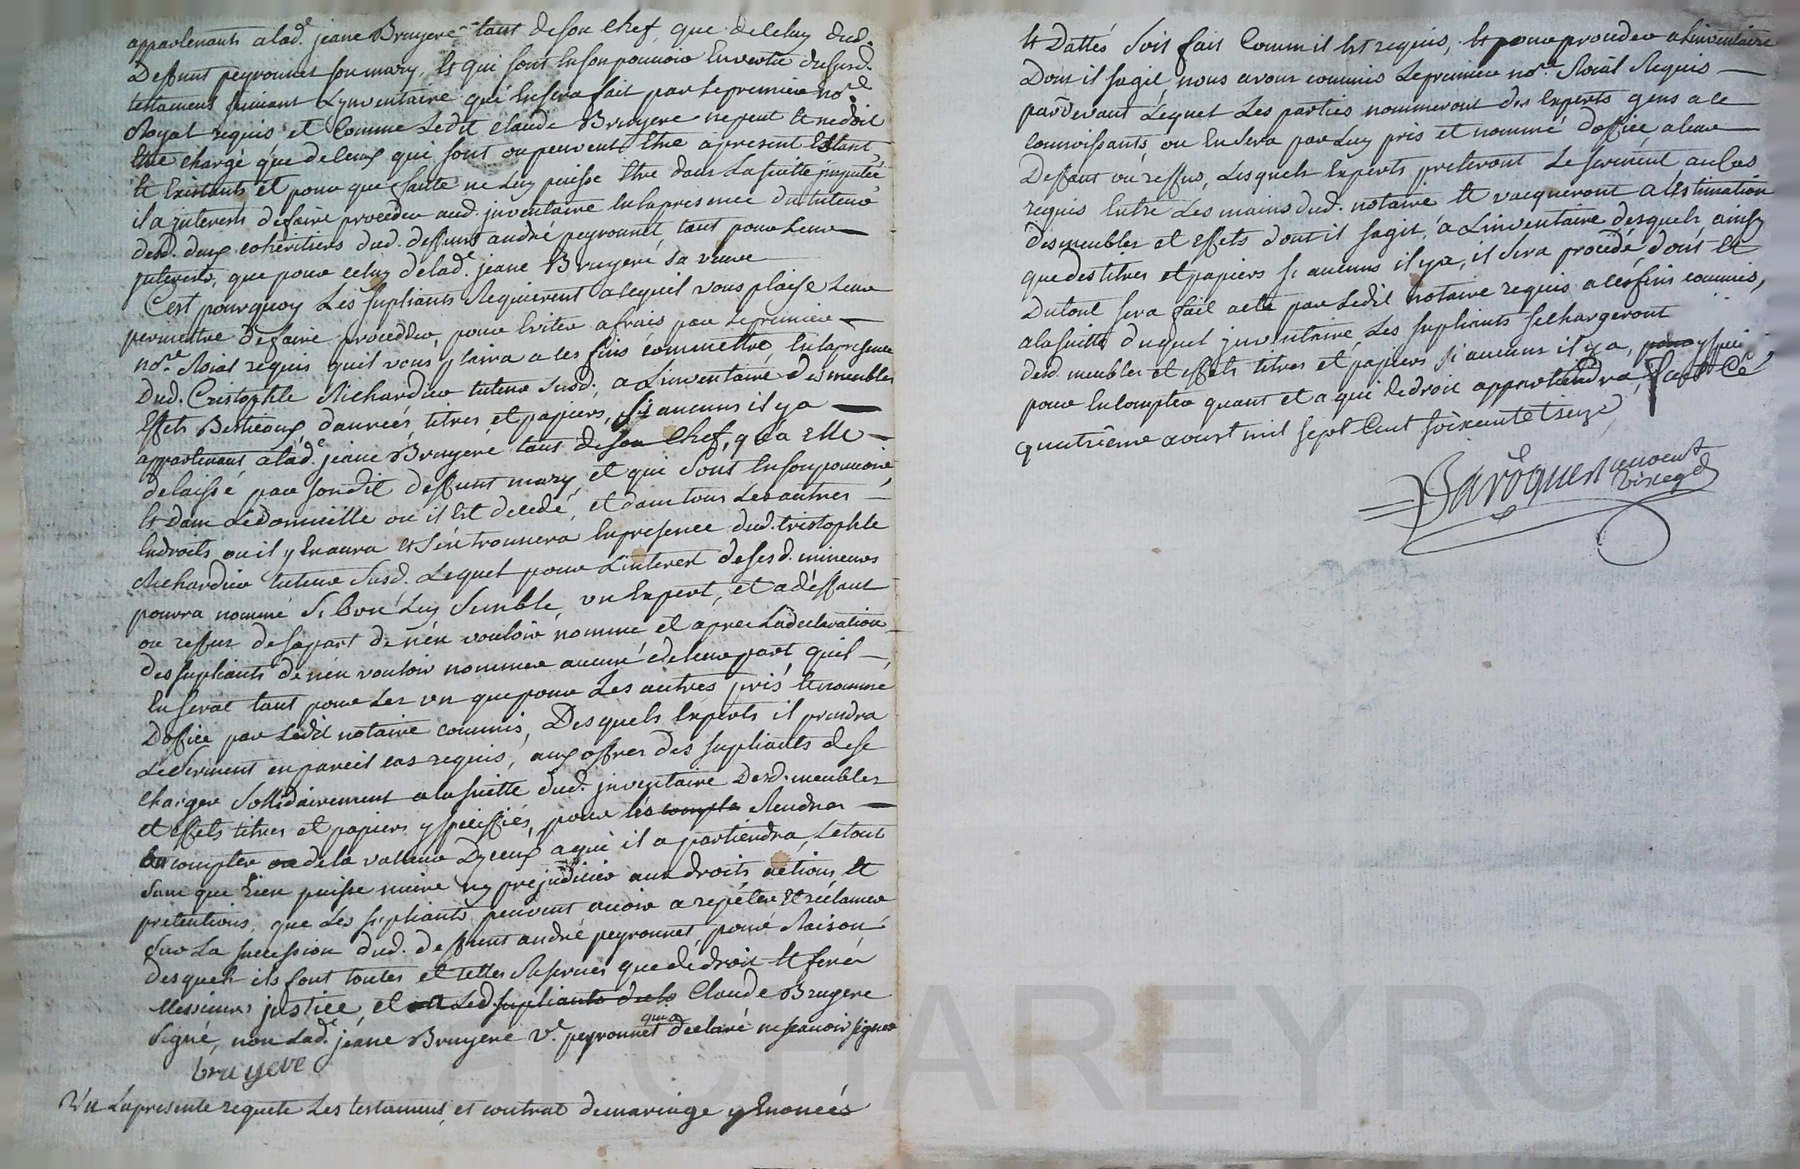 appartenants a lad.e jeane Bruyere tant de son chef, que de celuy dud.
Deffunt peyronnet son mary, et qui sont en son pouvoir en vertu dud. susd.
testament suivant Lynventaire qui en sera fait par le premier no.re
Royal requis et comme Ledit claude Bruyere ne peut et ne doit
Etre chargé que de ceux qui sont ou peuvent Etre apresent Estant
et Existants et pour que faute ne Luy puisse Etre dans La suitte imputée
il a juterests de faire proceder aud. inventaire en la presence du tuteur
desd. deux cohéritiers dud. deffunt andré peyronnet tant pour Leur
juterests, que pour celuy de lad.e jeane Bruyeré sa veuve
C'est pourquoy Les supliants Requierent a ce quil vous plaise Leur
permettre de faire procedder, pour Eviter a frais par le premier
no.re Roial requis quil vous plaira a ces fins commettre, en la presence
Dud. Cristophle Richardier tuteur susd. a Linventaire des meubles
Effets Bestieaux danrées, titres et papiers, si aucuns il y a
appartenant a lad.e jeane Bruyeré tans de son chef, qu'a Elle
delaissé par sondit deffunt mary, et qui sont en son pouvoir,
Et dans Le domicille ou il Est decedé, et dans tous Les autres
Endroits ou il y En aura et s'en trouvera En presence dud. Cristophle
Richardier tuteur susd. Lequel pour Linterest de sesd. mineures
pourra nommé si bon Luy semble, un Expert, et a deffaut
ou reffus de sa part de n'en vouloir nommé et apres La declaration
des supliants de n'en vouloir nommer aucuné de leur part quil
En serat tant pour Les un que pour Les autres pris et nommé
D'office par Ledit notaire commis, Desquels Experts il prendra
Le serment en pareil cas requis, aux offres des supliants de se
charger sollidairement a la suitte dud. inventaire Desd. meubles
et effets titres et papiers y speciffiés, pour les compte Rendres
En compter ou de la valleur D'yceux a qui il apartiendra, Le tout
sans que rien puisse nuire ny préjudicier aux droits actions et
pretentions, que Les supliants peuvent avoir a repéter Et réclamer
sur La succession dud. deffunt andré peyronnet, pour Raison
desquels ils font toutes et telles Reserves que de droit et feréz
Messieurs justice, et Led. supliants Claude Bruyere
signé, non Lad.e jéane Bruyere v.e peyronnet qui a declaré ne scavoir signer
bruyere
Vu La presente requete Les testament et contrat de mariage y Enoncés
Et Dattés soit fait comm il Est requis, Et pour proceder a Linventaire
Dont il sagit, nous avons commis Le premier no.re Roial Requis
pardevant Lequel Les parties nommeront des Experts gens a ce
connoissants, ou En sera par Luy pris et nommé d'office a leur
Deffaut ou reffus, Lesquels Experts preteront Le serment au cas
requis Entre Les mains dud. notaire et vacqueront a L'estimation
des meubles et effets dont il sagit, a Linventaire desquels ainsy
que des titres et papiers si aucuns il y a, il sera procédé, dont et
Du tout sera fait acte par Ledit notaire requis a ces fins commis,
a la suitte duquel inventaire Les supliants se chargeront
desd. meubles et effets titres et papiers si aucuns il y a,
pour En compter quant et a qui de droit appartiendra, fait Ce
quatrième aoust mil sept Cent soixante treize,
Baroques